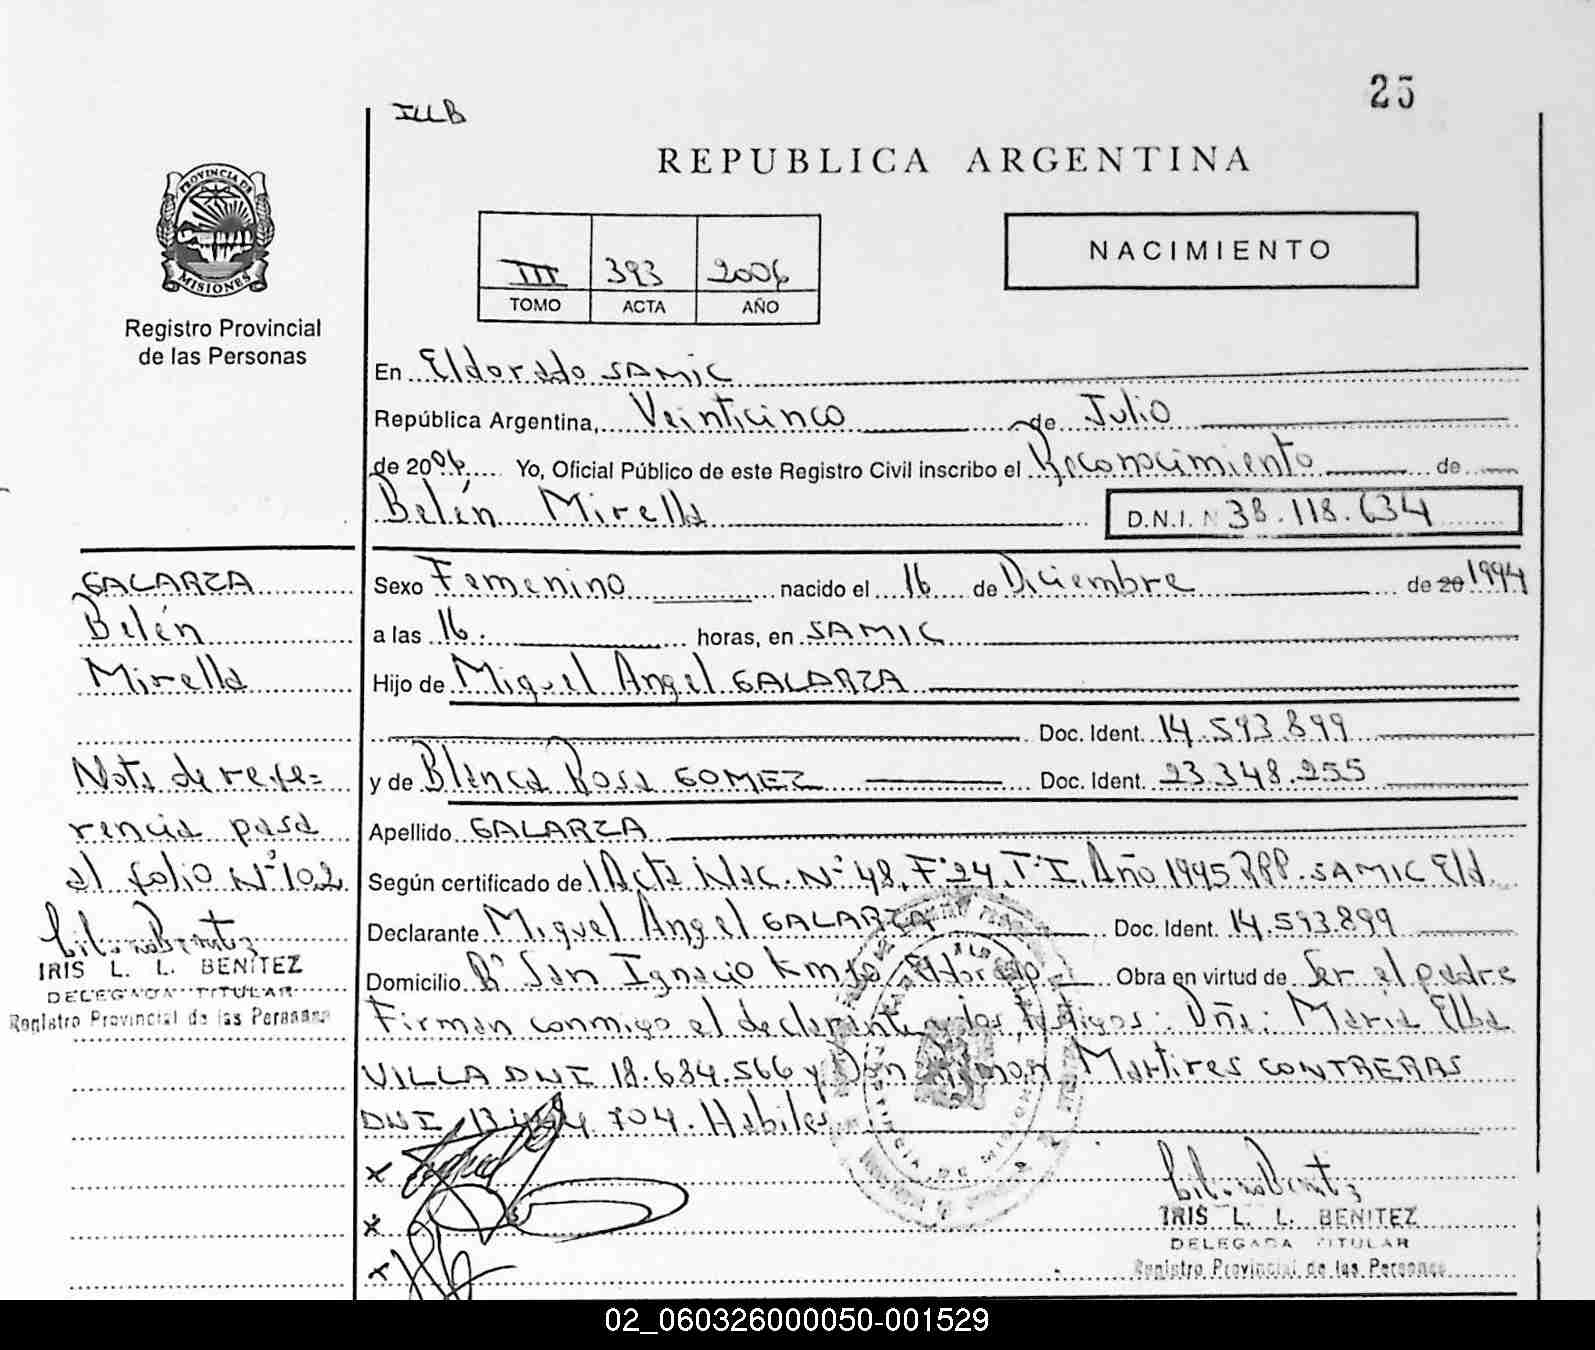 25
ILLB
REPUBLICA ARGENTINA
PROVINCIA DE
MISIONES
Registro Provincial
de las Personas
III 393 2006
TOMO ACTA AÑO
NACIMIENTO
En Eldorado SAMIC
República Argentina, Veinticinco de Julio
de 2006 Yo, Oficial Público de este Registro Civil inscribo el Reconocimiento de
Belén Mirella D.N.I. N 38.118.634
GALARZA
Belén
Mirella
Nota de refe=
rencia pasa
al folio Nº 102
IRIS L. L. BENITEZ
DELEGADA TITULAR
Registro Provincial de las Personas
Sexo Femenino nacido el 16 de Diciembre de 20 1994
a las 16. horas, en SAMIC
Hijo de Miguel Angel GALARZA
Doc. Ident. 14.593.899
y de Blanca Rosa GOMEZ Doc. Ident. 23.348.255
Apellido GALARZA
Según certificado de Acta Nac. Nº 48, Fº 24, Tº I, Año 1995 RPP. SAMIC Eld.
Declarante Miguel Angel GALARZA Doc. Ident. 14.593.899
Domicilio Bº San Ignacio Km 10 Eldorado Obra en virtud de Ser el padre
Firman conmigo el declarante y los Testigos: Dña: Maria Elba
VILLA DNI 18.684.566 y Don Ramon Martires CONTRERAS
DNI 13 704. Habiles
IRIS L. L. BENITEZ
DELEGADA TITULAR
Registro Provincial de las Personas
02_060326000050-001529